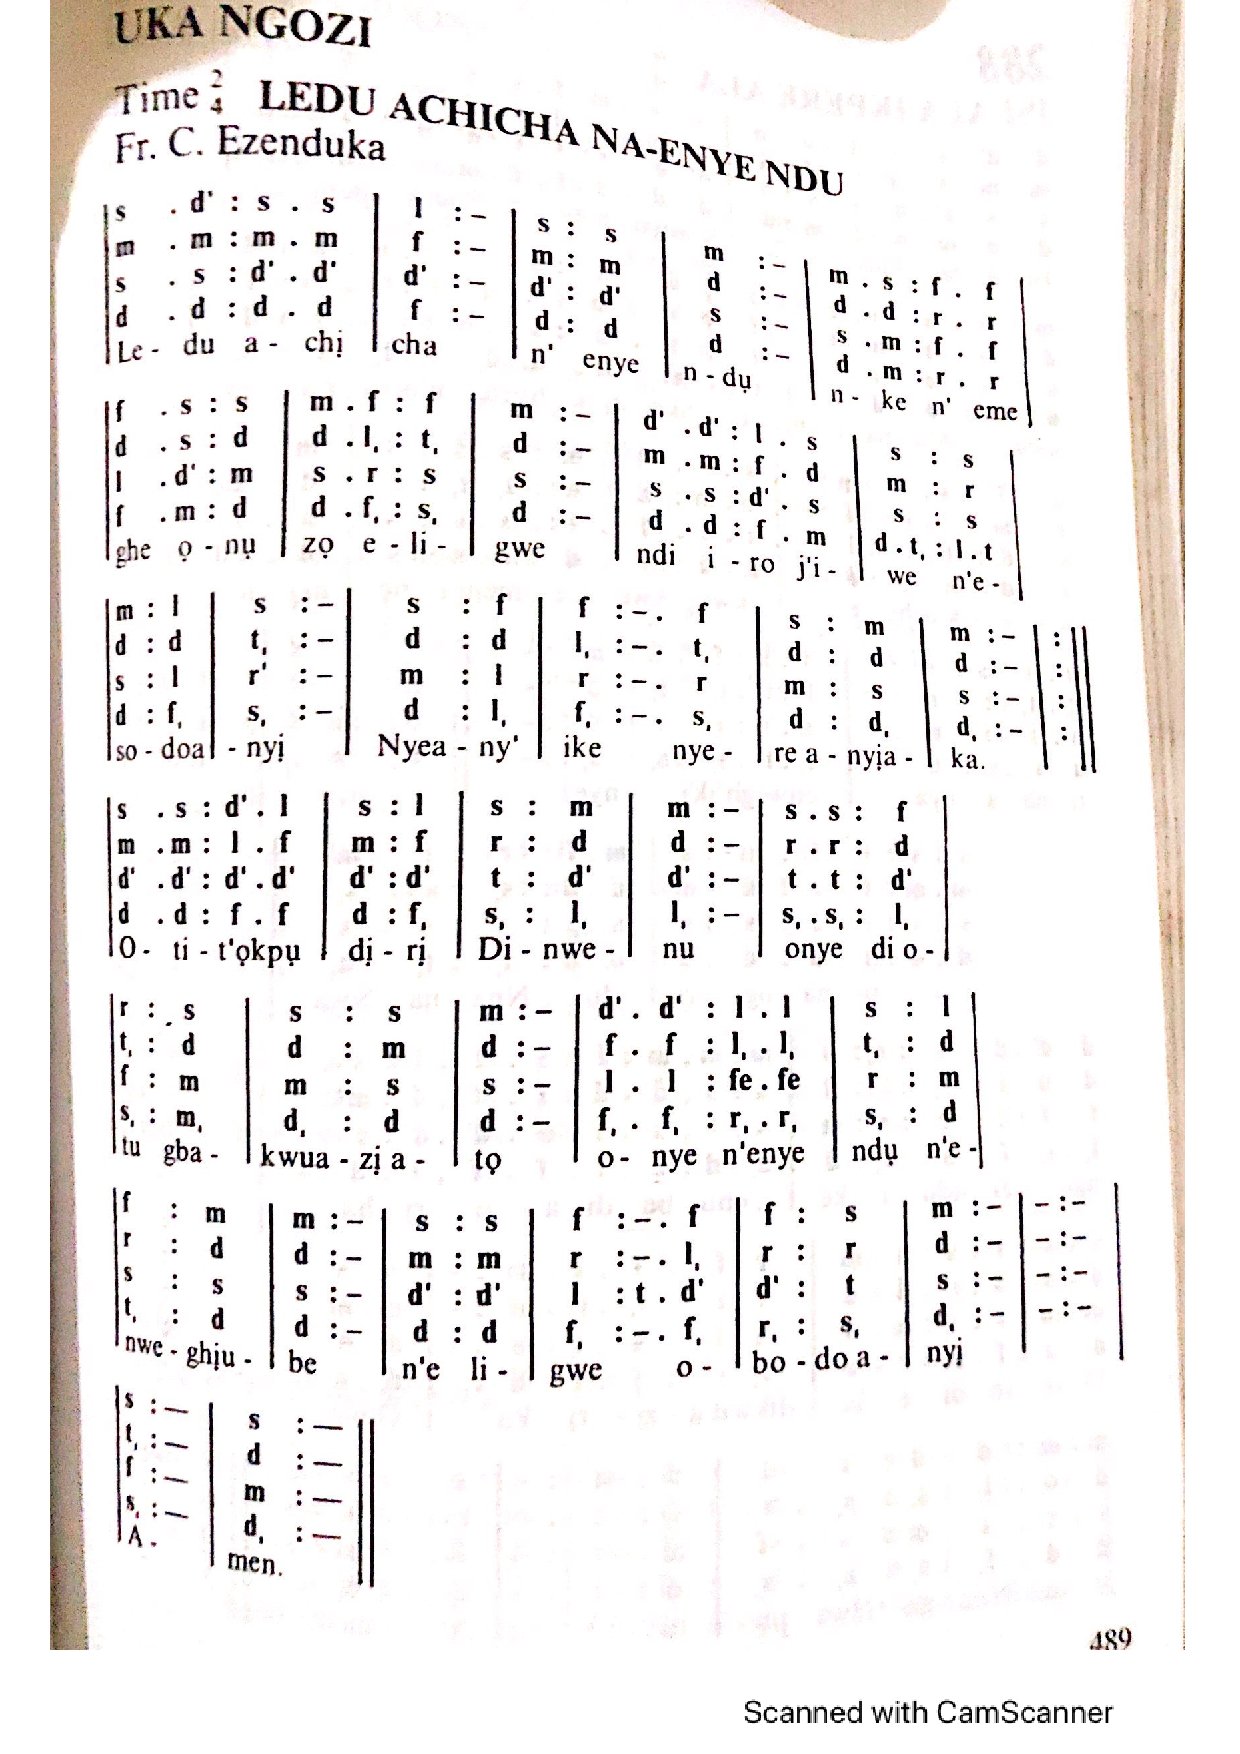 UKA NGOZI
Time 2/4 LEDU ACHICHA NA-ENYE NDU
Fr. C. Ezenduka
| s . d' : s . s | l : – | s : s | m : – | m . s : f . f |
| m . m : m . m | f : – | m : m | d : – | d . d : r . r |
| s . s : d' . d' | d' : – | d' : d' | s : – | s . m : f . f |
| d . d : d . d | f : – | d : d | d : – | d . m : r . r |
| Le - du a - chị | cha | n' enye | n - dụ | n - ke n' eme |
| f . s : s | m . f : f | m : – | d' . d' : l . s | s : s |
| d . s : d | d . l, : t, | d : – | m . m : f . d | m : r |
| l . d' : m | s . r : s | s : – | s . s : d' . s | s : s |
| f . m : d | d . f, : s, | d : – | d . d : f . m | d . t, : l . t |
| ghe ọ - nụ | zọ e - li - | gwe | ndi i - ro j'i - | we n'e - |
| m : l | s : – | s : f | f : – . f | s : m | m : – | : ||
| d : d | t, : – | d : d | l, : – . t, | d : d | d : – | : ||
| s : l | r' : – | m : l | r : – . r | m : s | s : – | : ||
| d : f, | s, : – | d : l, | f, : – . s, | d : d, | d, : – | : ||
| so - doa | - nyị | Nyea - ny' | ike nye - | re a - nyịa - | ka. | ||
| s . s : d' . l | s : l | s : m | m : – | s . s : f |
| m . m : l . f | m : f | r : d | d : – | r . r : d |
| d' . d' : d' . d' | d' : d' | t : d' | d' : – | t . t : d' |
| d . d : f . f | d : f, | s, : l, | l, : – | s, . s, : l, |
| O - ti - t'ọkpụ | dị - rị | Di - nwe - | nu | onye di o - |
| r : . s | s : s | m : – | d' . d' : l . l | s : l |
| t, : d | d : m | d : – | f . f : l, . l, | t, : d |
| f : m | m : s | s : – | l . l : fe . fe | r : m |
| s, : m, | d, : d | d : – | f, . f, : r, . r, | s, : d |
| tu gba - | kwua - zị a - | tọ | o - nye n'enye | ndụ n'e - |
| f : m | m : – | s : s | f : – . f | f : s | m : – | – : – |
| r : d | d : – | m : m | r : – . l, | r : r | d : – | – : – |
| s : s | s : – | d' : d' | l : t . d' | d' : t | s : – | – : – |
| t, : d | d : – | d : d | f, : – . f, | r, : s, | d, : – | – : – |
| nwe - ghịu - | be | n'e li - | gwe o - | bo - do a - | nyị |
| s : — | s : — ||
| t, : — | d : — ||
| f : — | m : — ||
| s, : — | d, : — ||
| A . | men. ||
489
Scanned with CamScanner